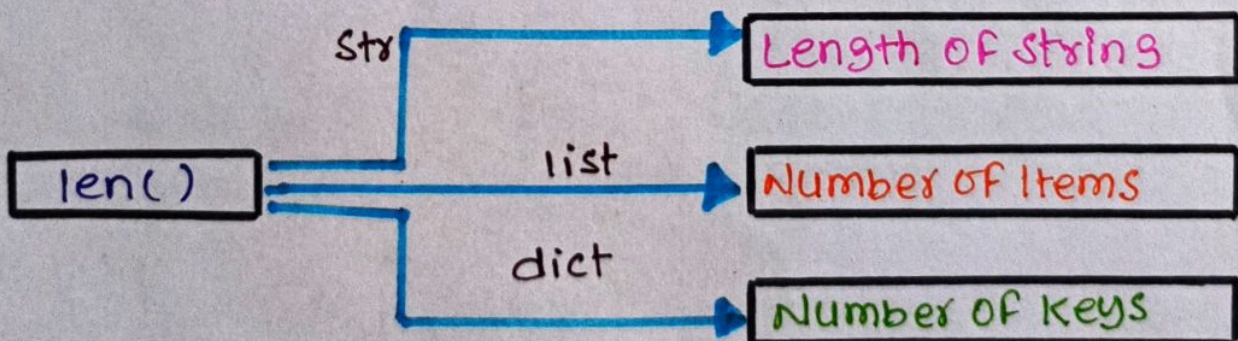 Str
Length of String
len()
list
Number of Items
dict
Number of keys